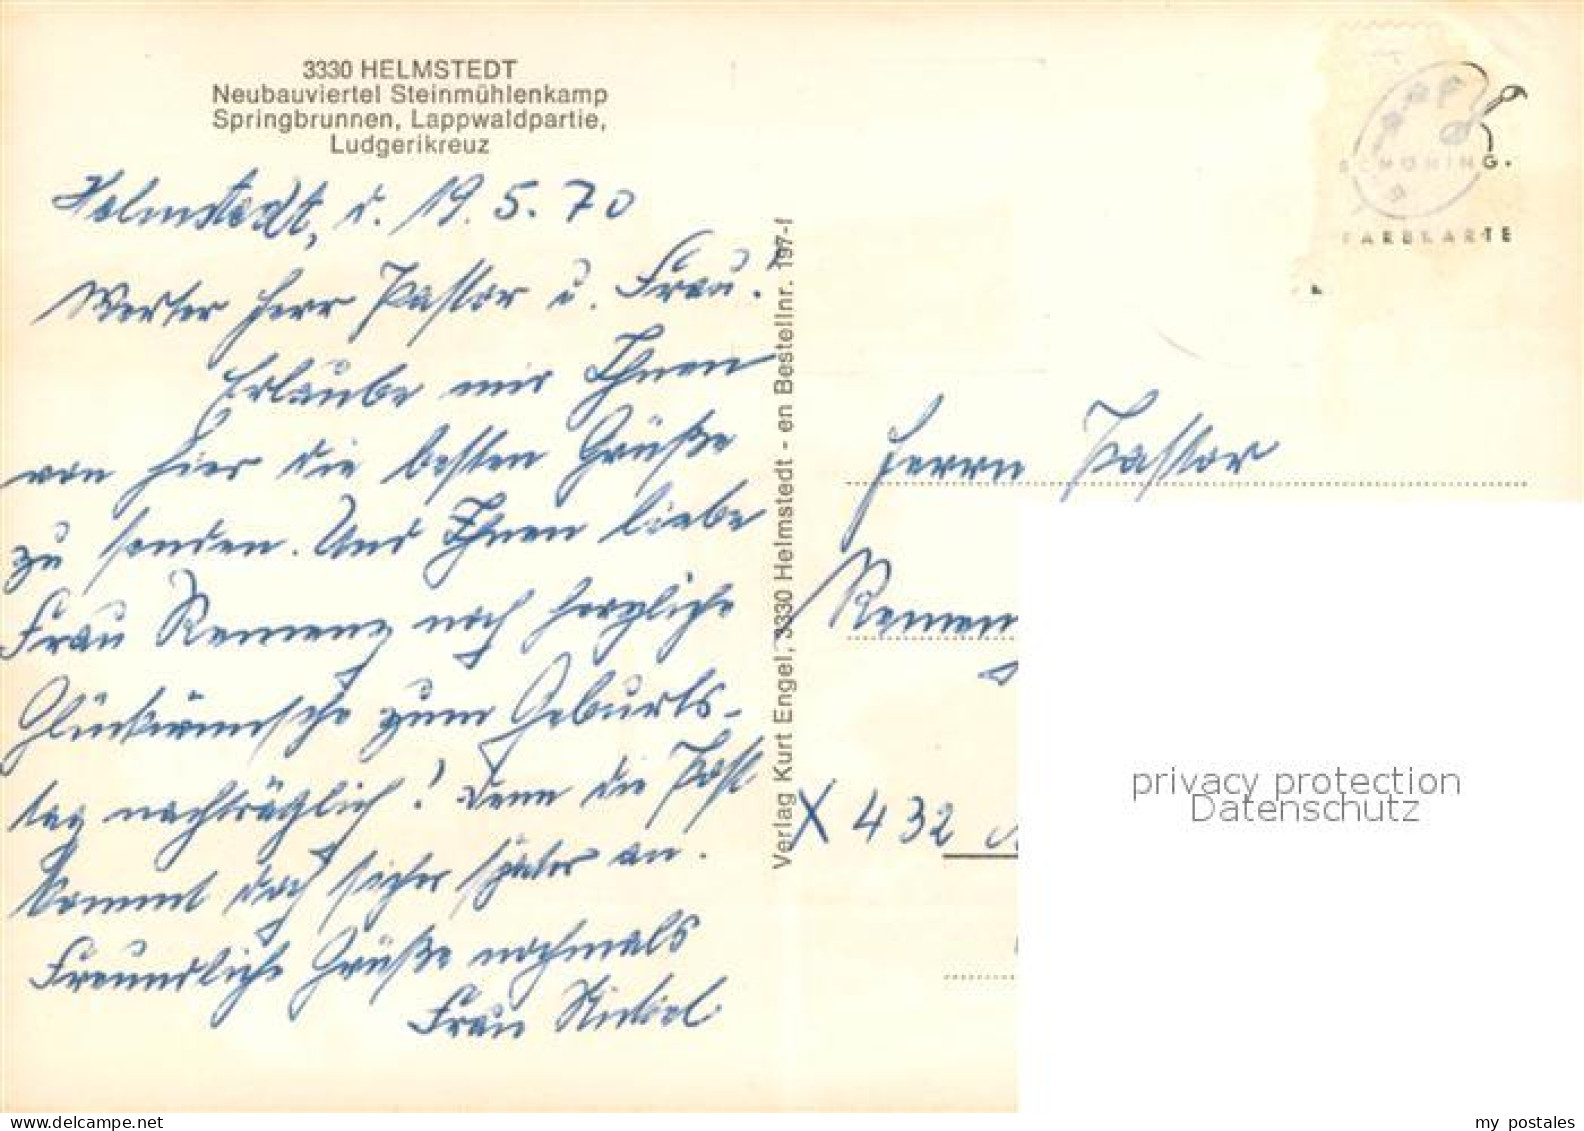 3330 HELMSTEDT
Neubauviertel Steinmühlenkamp
Springbrunnen, Lappwaldpartie,
Ludgerikreuz
Helmstedt, d. 19. 5. 70
Werter Herr Pastor u. Frau!
Erlaube mir Ihnen
von hier die besten Grüße
zu senden. Und Ihnen liebe
Frau Remenz noch herzliche
Glückwünsche zum Geburts-
tag nachträglich! Denn die Post
kommt doch sicher später an.
Freundliche Grüße nochmals
Frau
Verlag Kurt Engel, 3330 Helmstedt - en Bestellnr. 197-f
SCHÖNING.
FARBKARTE
Herrn Pastor
Remen
X 432
privacy protection
Datenschutz
my postales